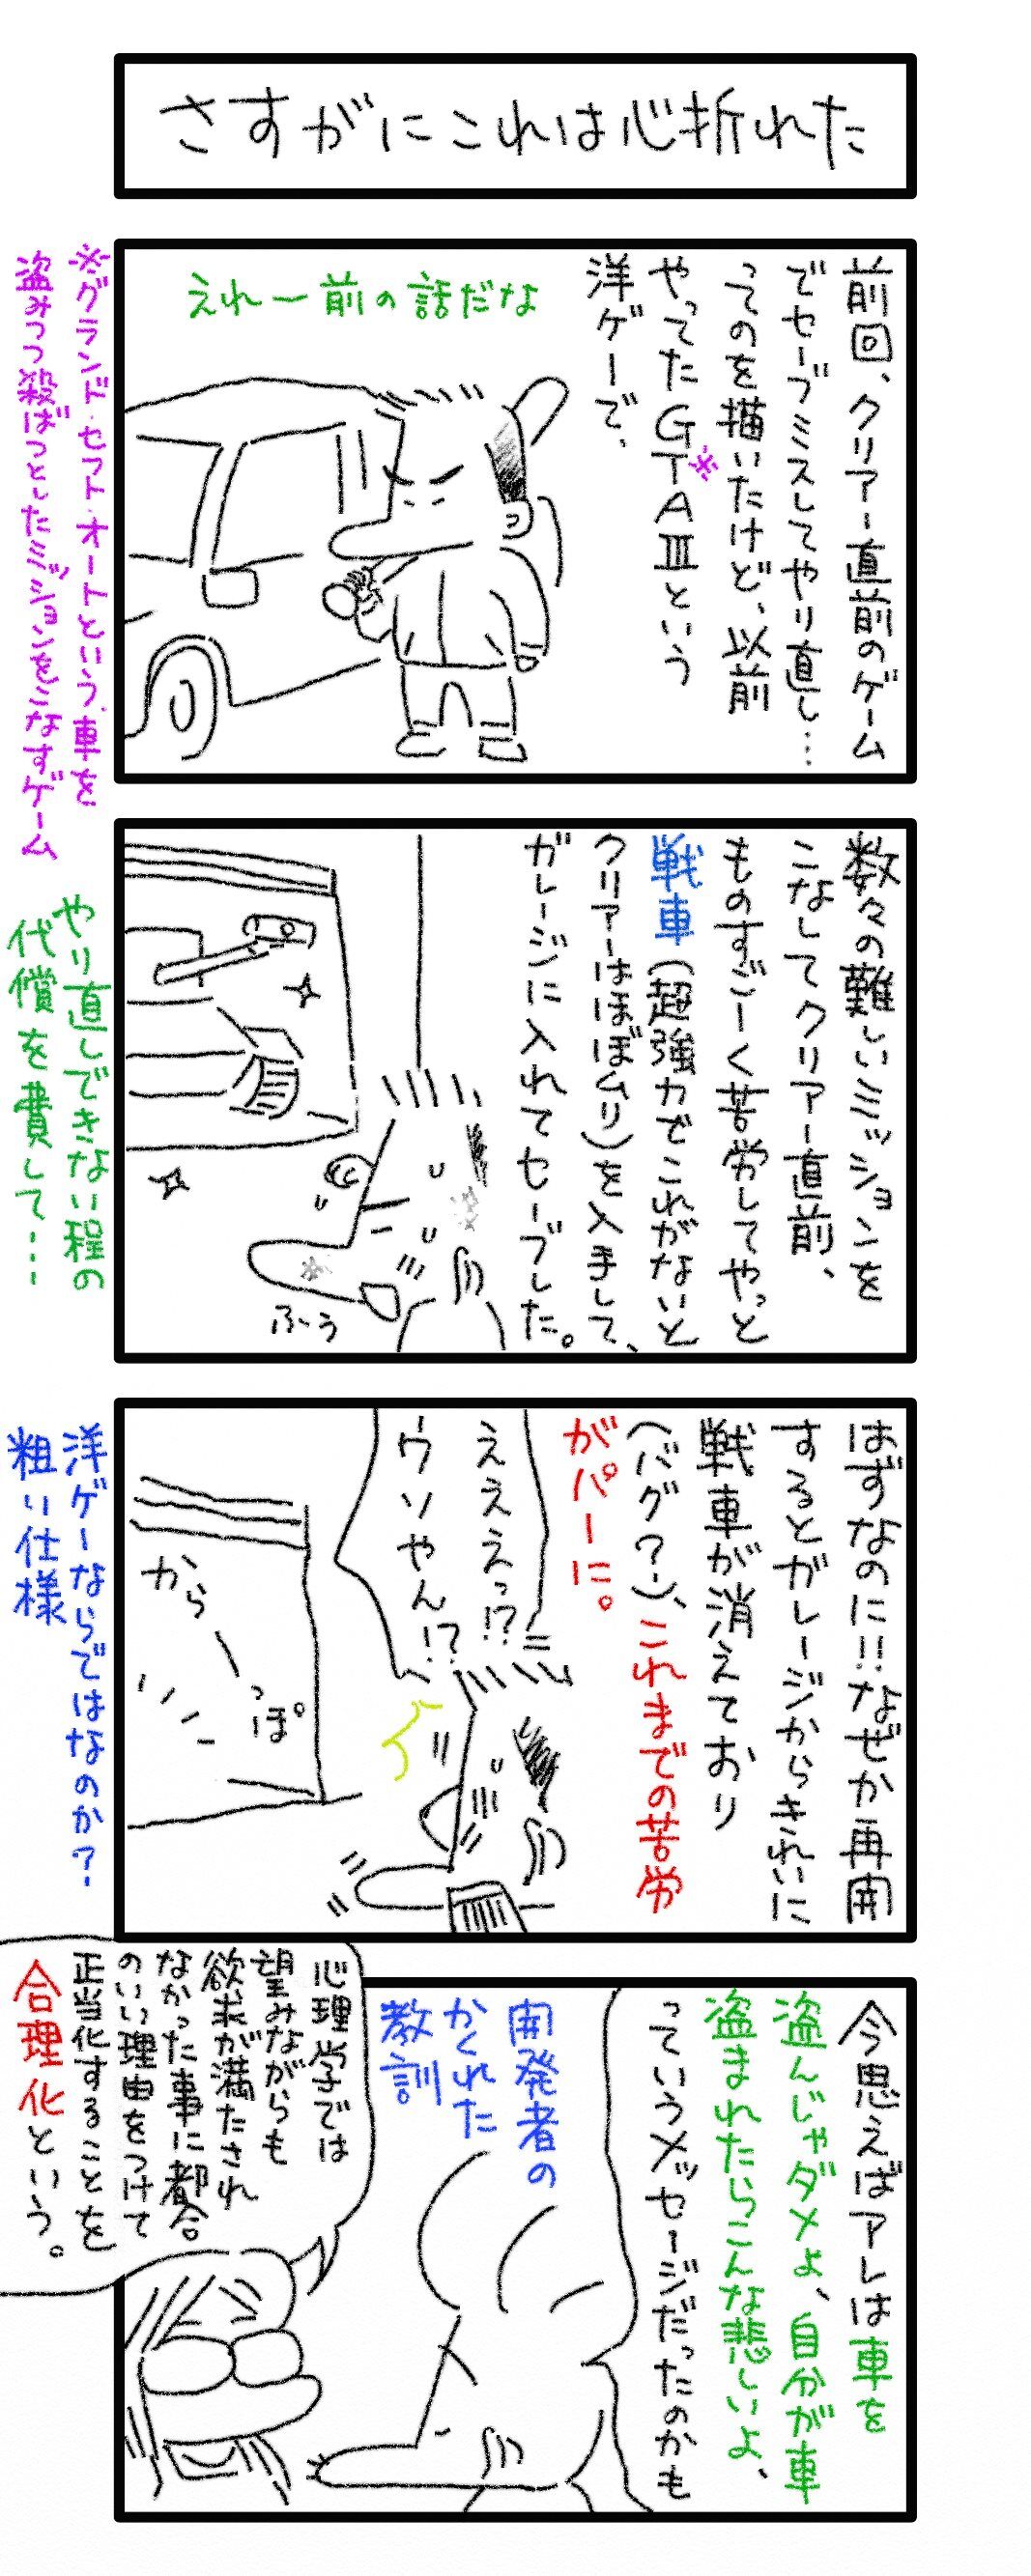 さすがにこれは心折れた
前回、クリアー直前のゲーム
でセーブミスしてやり直し…
ってのを描いたけど、以前
やってたGTAⅢという
※
洋ゲーで、
えれー前の話だな
※グランド・セフト・オートという、車を
盗みつつ殺ばつとしたミッションをこなすゲーム
数々の難しいミッションを
こなしてクリアー直前、
ものすごーく苦労してやっと
戦車(超強力でこれがないと
クリアーはほぼムリ)を入手して、
ガレージに入れてセーブした。
ふぅ
やり直しできない程の
代償を費して…
はずなのに!!なぜか再開
するとガレージからきれいに
戦車が消えており
(バグ?)、これまでの苦労
がパーに。
えええっ!?
ウソやん!?
から
っぽ
洋ゲーならではなのか?
粗い仕様
今思えばアレは車を
盗んじゃダメよ、自分が車
盗まれたらこんな悲しいよ、
っていうメッセージだったのかも
開発者の
かくれた
教訓
心理学では
望みながらも
欲求が満たされ
なかった事に都合
のいい理由をつけて
正当化することを
合理化という。